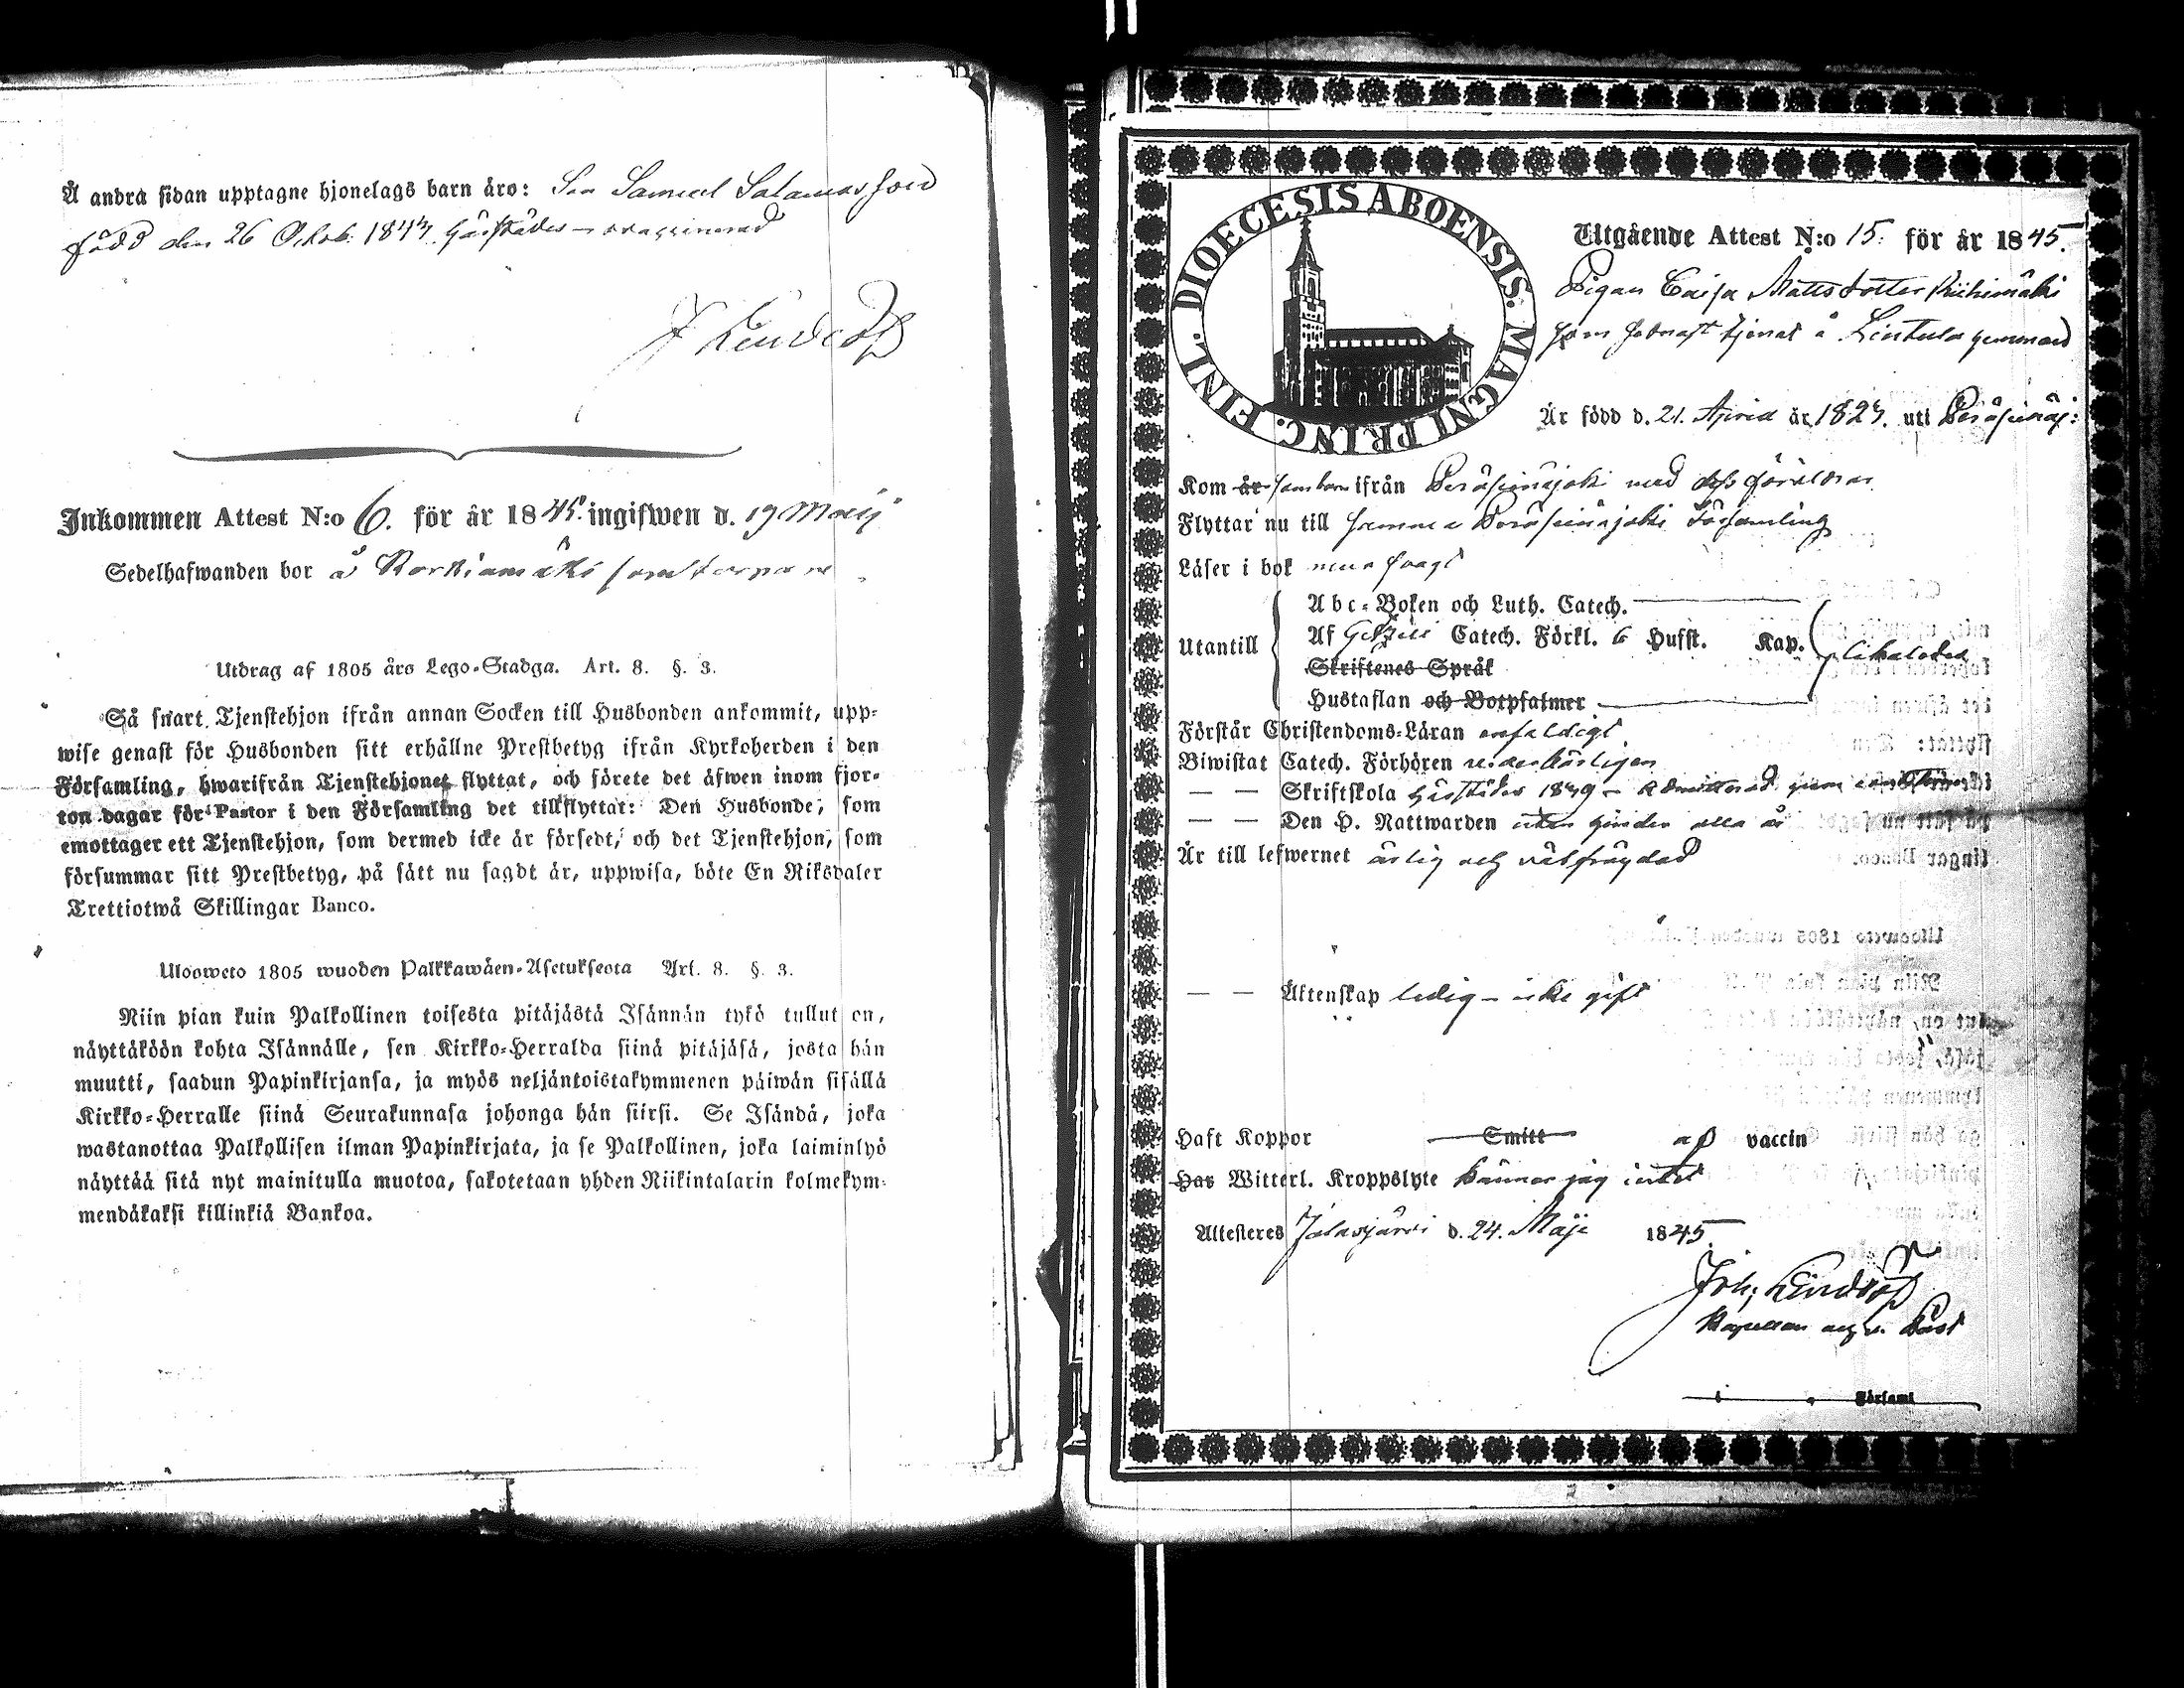 Å andra sidan upptagne hjonelags barn äro: Son Samuel Salomonsson
född den 26 Octob. 1843. härstädes – ovaccinerad
J Lindlöf
Inkommen Attest N:o 6. för år 1845. ingifwen d. 19 Maij
Sedelhafwanden bor å Korkiamäki som torpare
Utdrag af 1805 års Lego-Stadga. Art. 8. §. 3.
Så snart Tjenstehjon ifrån annan Socken till Husbonden ankommit, upp-
wise genast för Husbonden sitt erhållne Prestbetyg ifrån Kyrkoherden i den
Församling, hwarifrån Tjenstehjonet flyttat, och förete det äfwen inom fjor-
ton dagar för Pastor i den Församling det tillflyttar: Den Husbonde, som
emottager ett Tjenstehjon, som dermed icke är försedt, och det Tjenstehjon, som
försummar sitt Prestbetyg, på sätt nu sagdt är, uppwisa, böte En Riksdaler
Trettiotwå Skillingar Banco.
Ulosweto 1805 wuoden Palkkawäen-Asetuksesta Art. 8. §. 3.
Niin pian kuin Palkollinen toisesta pitäjästä Isännän tykö tullut on,
näyttäköön kohta Isännälle, sen Kirkko-Herralda siinä pitäjäsä, josta hän
muutti, saadun Papinkirjansa, ja myös neljäntoistakymmenen päiwän sisällä
Kirkko-Herralle siinä Seurakunnasa johonga hän siirsi. Se Isändä, joka
wastanottaa Palkollisen ilman Papinkirjata, ja se Palkollinen, joka laiminlyö
näyttää sitä nyt mainitulla muotoa, sakotetaan yhden Riikintalarin kolmekym-
mendäkaksi killinkiä Bankoa.
DIOECESIS ABOENSIS. MAGNI PRINC. FINL.
Utgående Attest N:o 15. för år 1845.
Pigan Caisa Mattsdotter Riihimäki
som sednast tjenat å Lintula hemman
Är född d. 21. April år 1823. uti Peräseinäj:
Kom år som barn ifrån Peräseinäjoki med dess föräldrar
Flyttar nu till samma Peräseinäjoki Församling
Läser i bok nara svagt
Utantill
Abc-Boken och Luth. Catech.
Af Gezelii Catech. Förkl. 6 Hufst. Kap. likaledes
Skriftenes Språk
Hustaflan och Botpsalmer
Förstår Christendoms-Läran enfaldigt
Biwistat Catech. Förhören
— — Skriftskola härstädes 18
— — Den H. Nattwarden utan hinder alla år
Är till lefwernet ärlig och välfräjdad
— — Äktenskap ledig – icke gift
Haft Koppor Smitt af vaccin
Har Witterl. Kroppslyte känner jag intet
Attesteres Jalasjärvi d. 24. Maji 1845.
Joh. Lindlöf
Kapellan och v. Past
i Församl